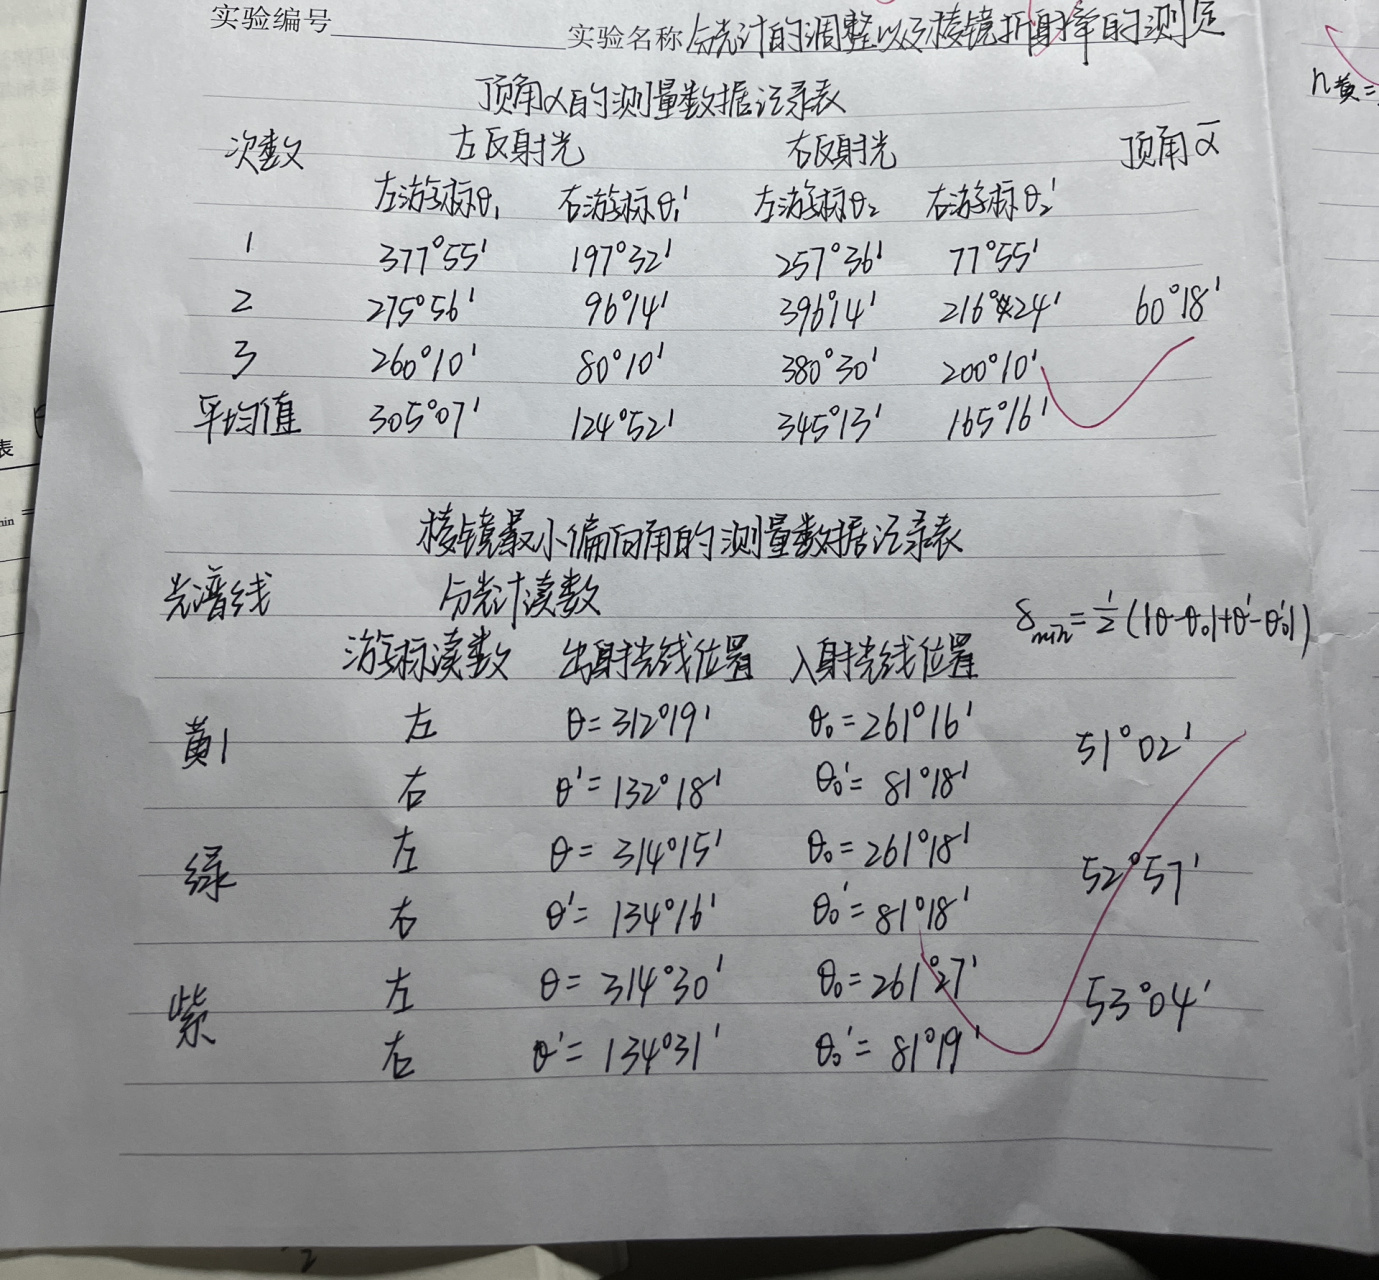 实验编号 实验名称 分光计的调整以及棱镜折射率的测定
n黄=
顶角α的测量数据记录表
次数 左反射光 右反射光 顶角ᾱ
左游标θ₁ 右游标θ₁' 左游标θ₂ 右游标θ₂'
1 377°55' 197°32' 257°36' 77°55'
2 275°56' 96°14' 396°14' 216°24' 60°18'
3 260°10' 80°10' 380°30' 200°10'
平均值 305°07' 124°52' 345°13' 165°16'
表
min =
棱镜最小偏向角的测量数据记录表
光谱线 分光计读数 δmin=½(|θ-θ₀|+θ'-θ₀'|)
游标读数 出射光线位置 入射光线位置
黄1 左 θ=312°19' θ₀=261°16' 51°02'
右 θ'=132°18' θ₀'=81°18'
绿 左 θ=314°15' θ₀=261°18' 52°57'
右 θ'=134°16' θ₀'=81°18'
紫 左 θ=314°30' θ₀=261°27' 53°04'
右 θ'=134°31' θ₀'=81°19'